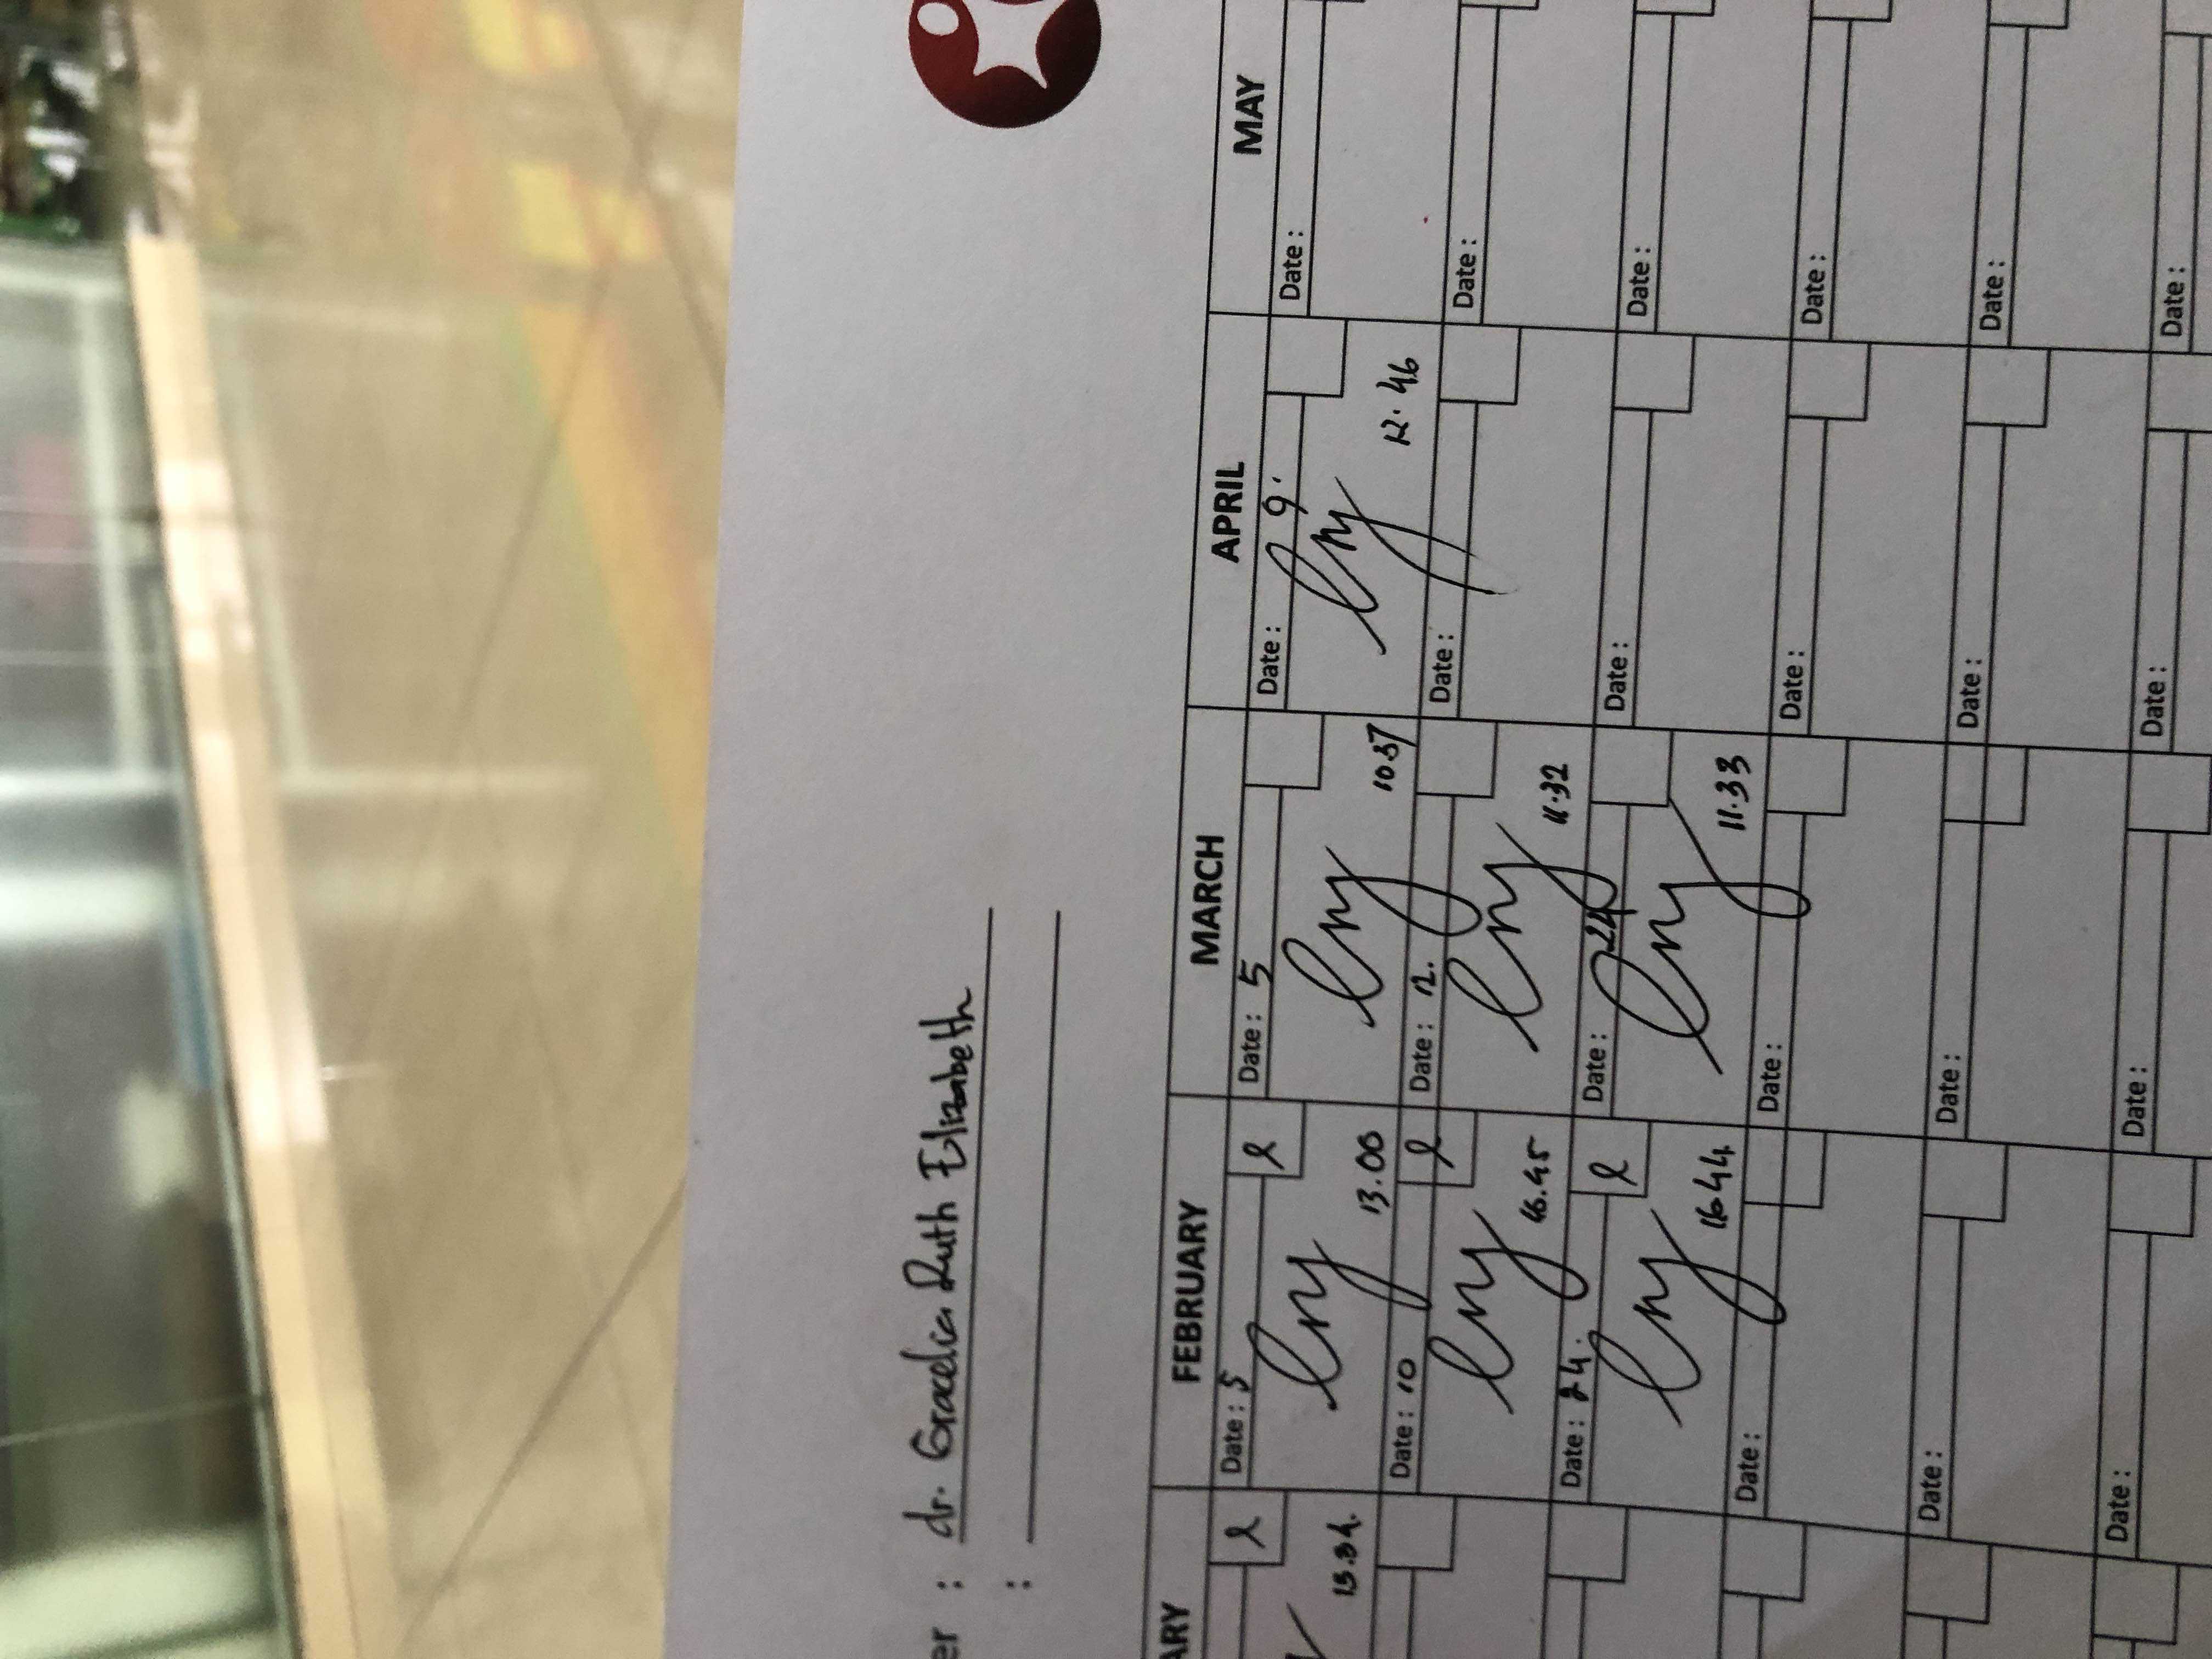 er : dr. Gracelia Ruth Elizabeth
:
ARY FEBRUARY MARCH APRIL MAY
Date : 5 Date : 5 Date : 9. Date :
13.34. 13.00 10.37 12.46
Date : 10 Date : 12. Date : Date :
16.45 11.32
Date : 24. Date : 24 Date : Date :
16.44 11.33
Date : Date : Date : Date :
Date : Date : Date : Date :
Date : Date : Date : Date :